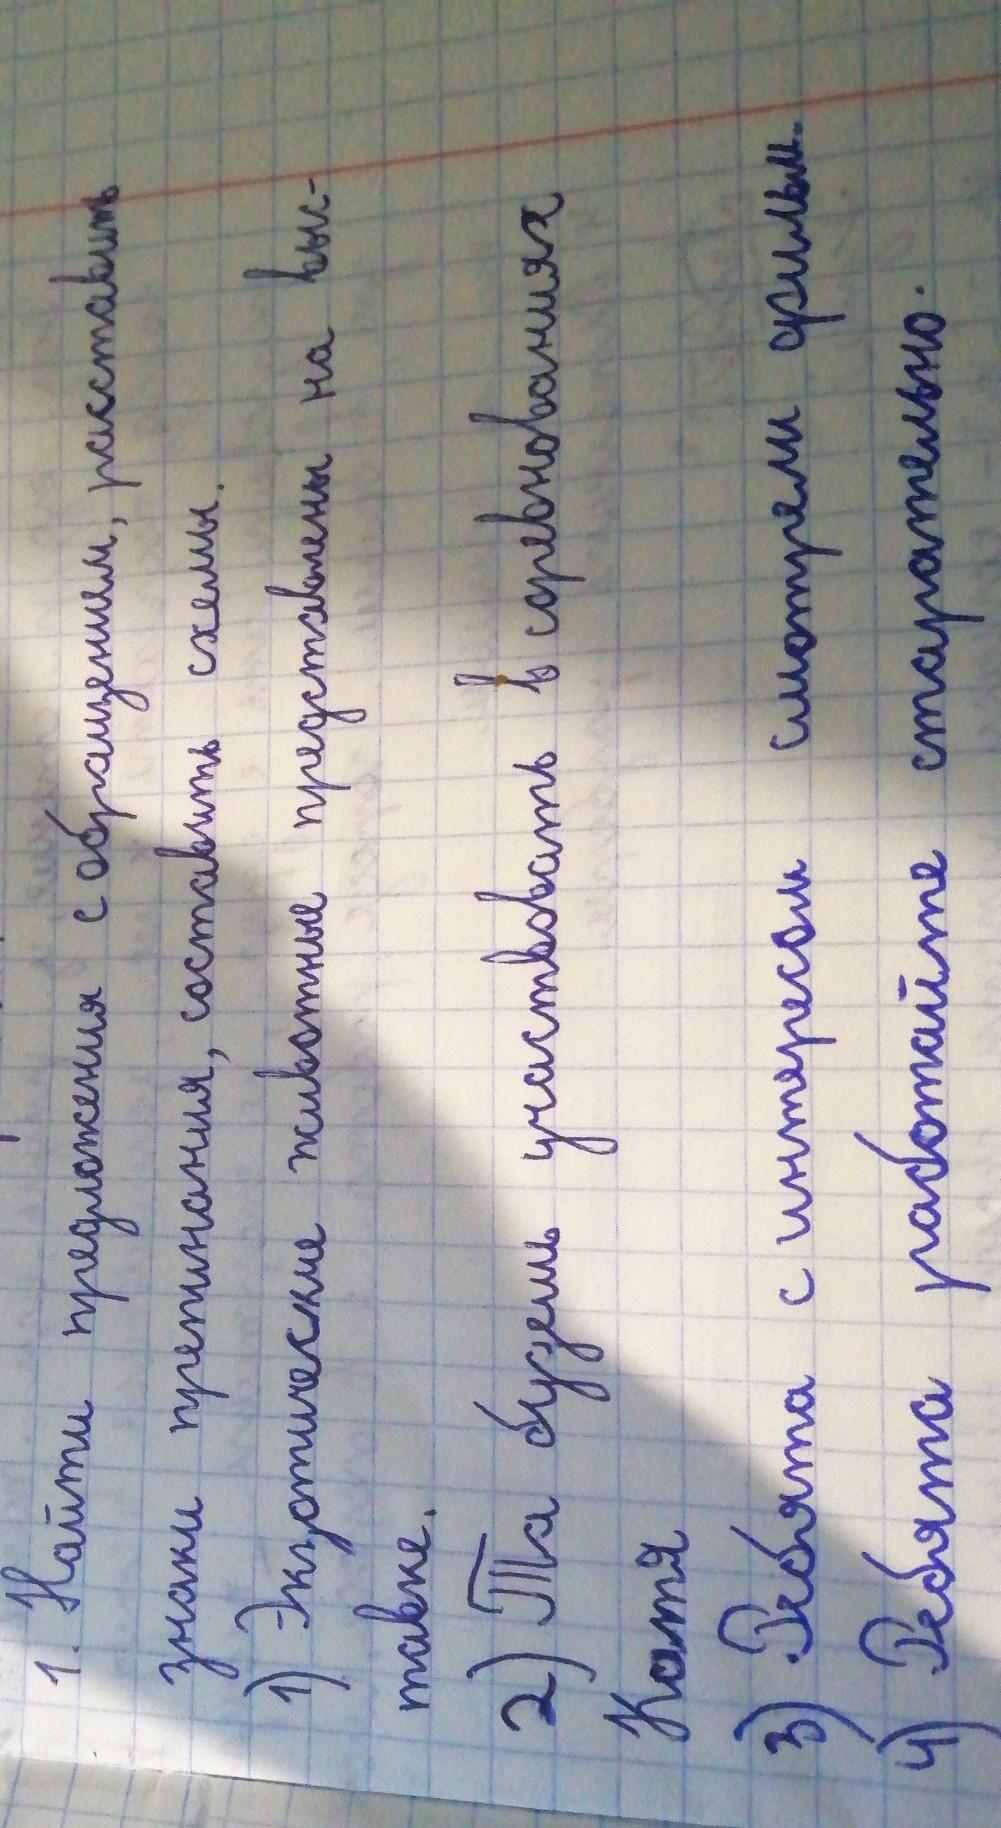 1. Найти предложения с обращением, расставить
знаки препинания, составить схемы.
1) Экзотические животные представлены на выс-
тавке.
2) Та будешь участвовать в соревнованиях
Катя
3) Ребята с интересом смотрели фильм.
4) Ребята работайте старательно.